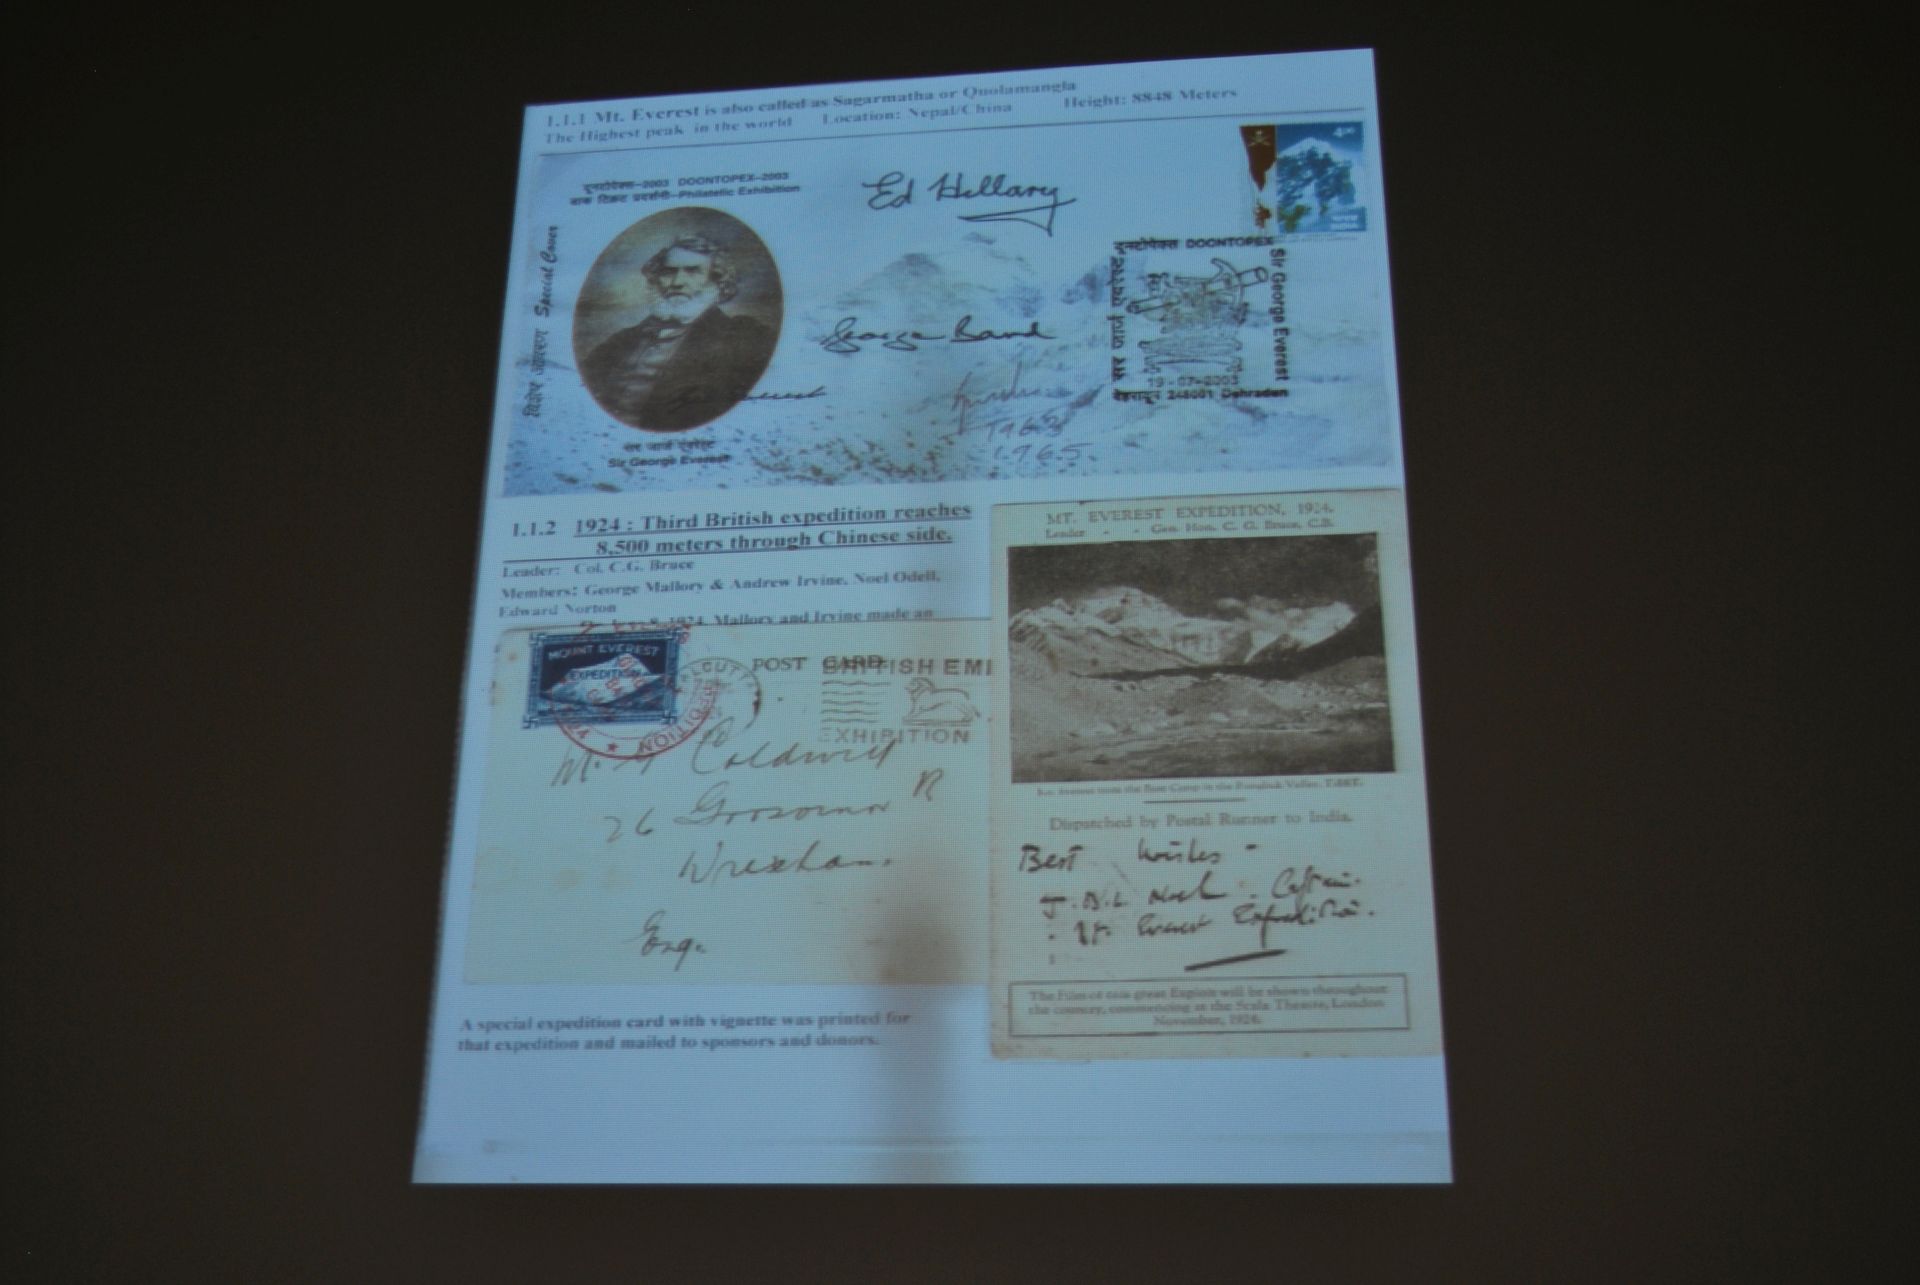 1.1.1 Mt. Everest is also called as Sagarmatha or Quolamangla
The Highest peak in the world Location: Nepal/China Height: 8848 Meters
दूनटोपेक्स-2003 DOONTOPEX-2003
डाक टिकट प्रदर्शनी-Philatelic Exhibition
Ed Hillary
4.00
भारत
INDIA
विशेष आवरण Special Cover
George Band
दूनटोपेक्स DOONTOPEX
Sir George Everest
19-07-2003
देहरादून 248001 Dehradun
1963
1965
सर जार्ज एवरेस्ट
Sir George Everest
1.1.2 1924 : Third British expedition reaches
8,500 meters through Chinese side.
Leader: Col. C.G. Bruce
Members: George Mallory & Andrew Irvine, Noel Odell,
Edward Norton
8, 1924, Mallory and Irvine made an
MOUNT EVEREST
EXPEDITION
POST CARD
BRITISH EMI
EXHIBITION
EXPEDITION
Coldwell
26 Grosvenor R
Wrexham.
Esq.
MT. EVEREST EXPEDITION, 1924.
Leader - - Gen. Hon. C. G. Bruce, C.B.
Mt. Everest from the Base Camp in the Rongbuk Valley, TIBET.
Dispatched by Postal Runner to India.
Best Wishes -
J.B.L. Noel. Captain.
Mt. Everest Expedition.
The Film of this great Exploit will be shown throughout
the country, commencing at the Scala Theatre, London
November, 1924.
A special expedition card with vignette was printed for
that expedition and mailed to sponsors and donors.